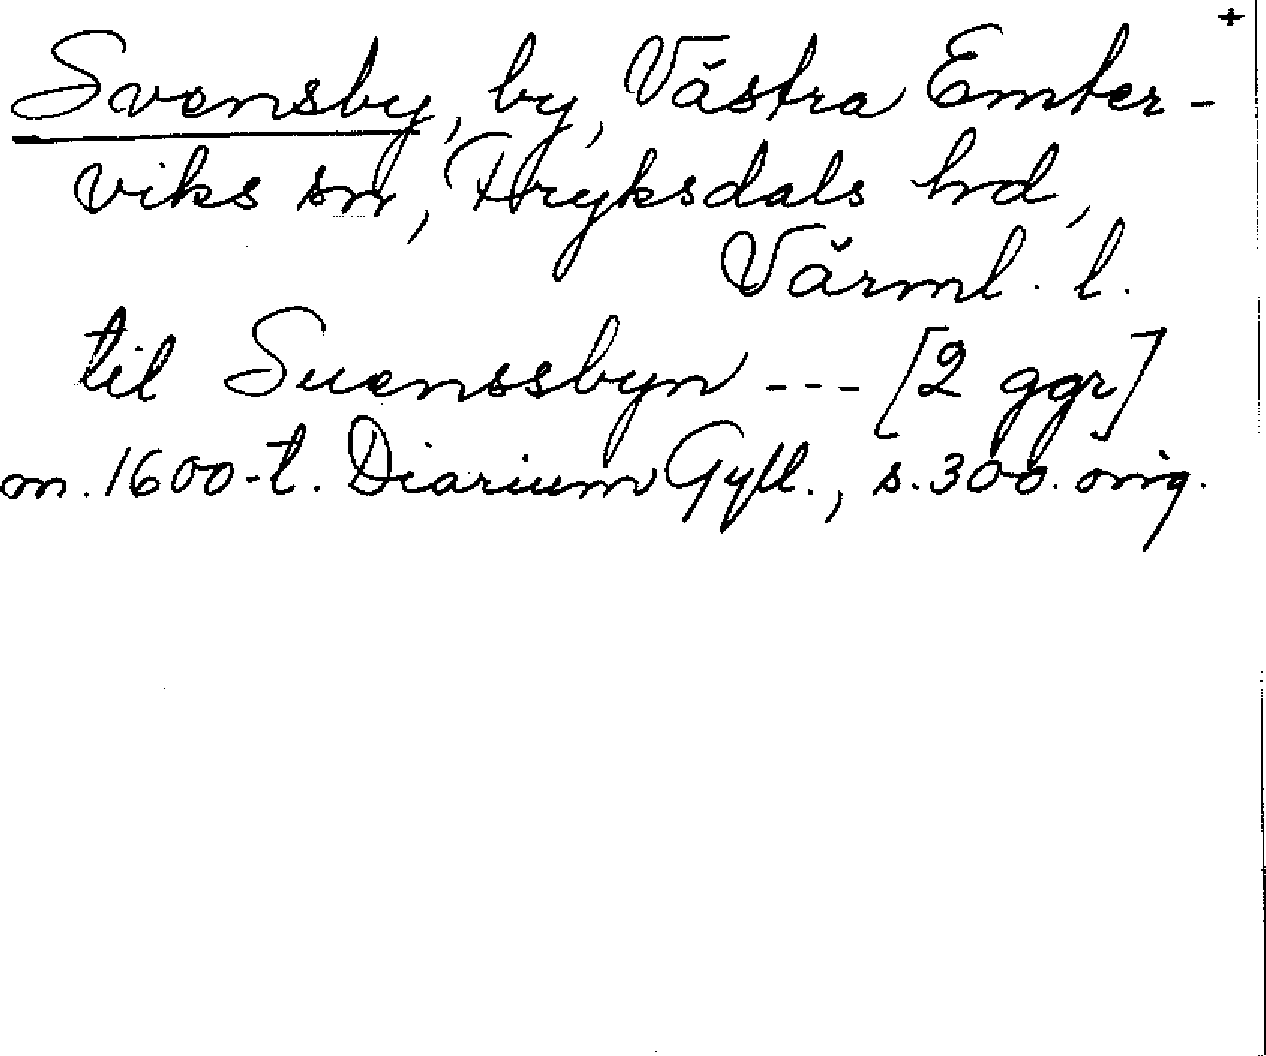 +
Svensby, by, Västra Emter-
viks sn, Fryksdals hd,
Värml. l.
til Suenssbyn --- [2 ggr]
m. 1600-t. Diarium Gyll., s. 300. orig.